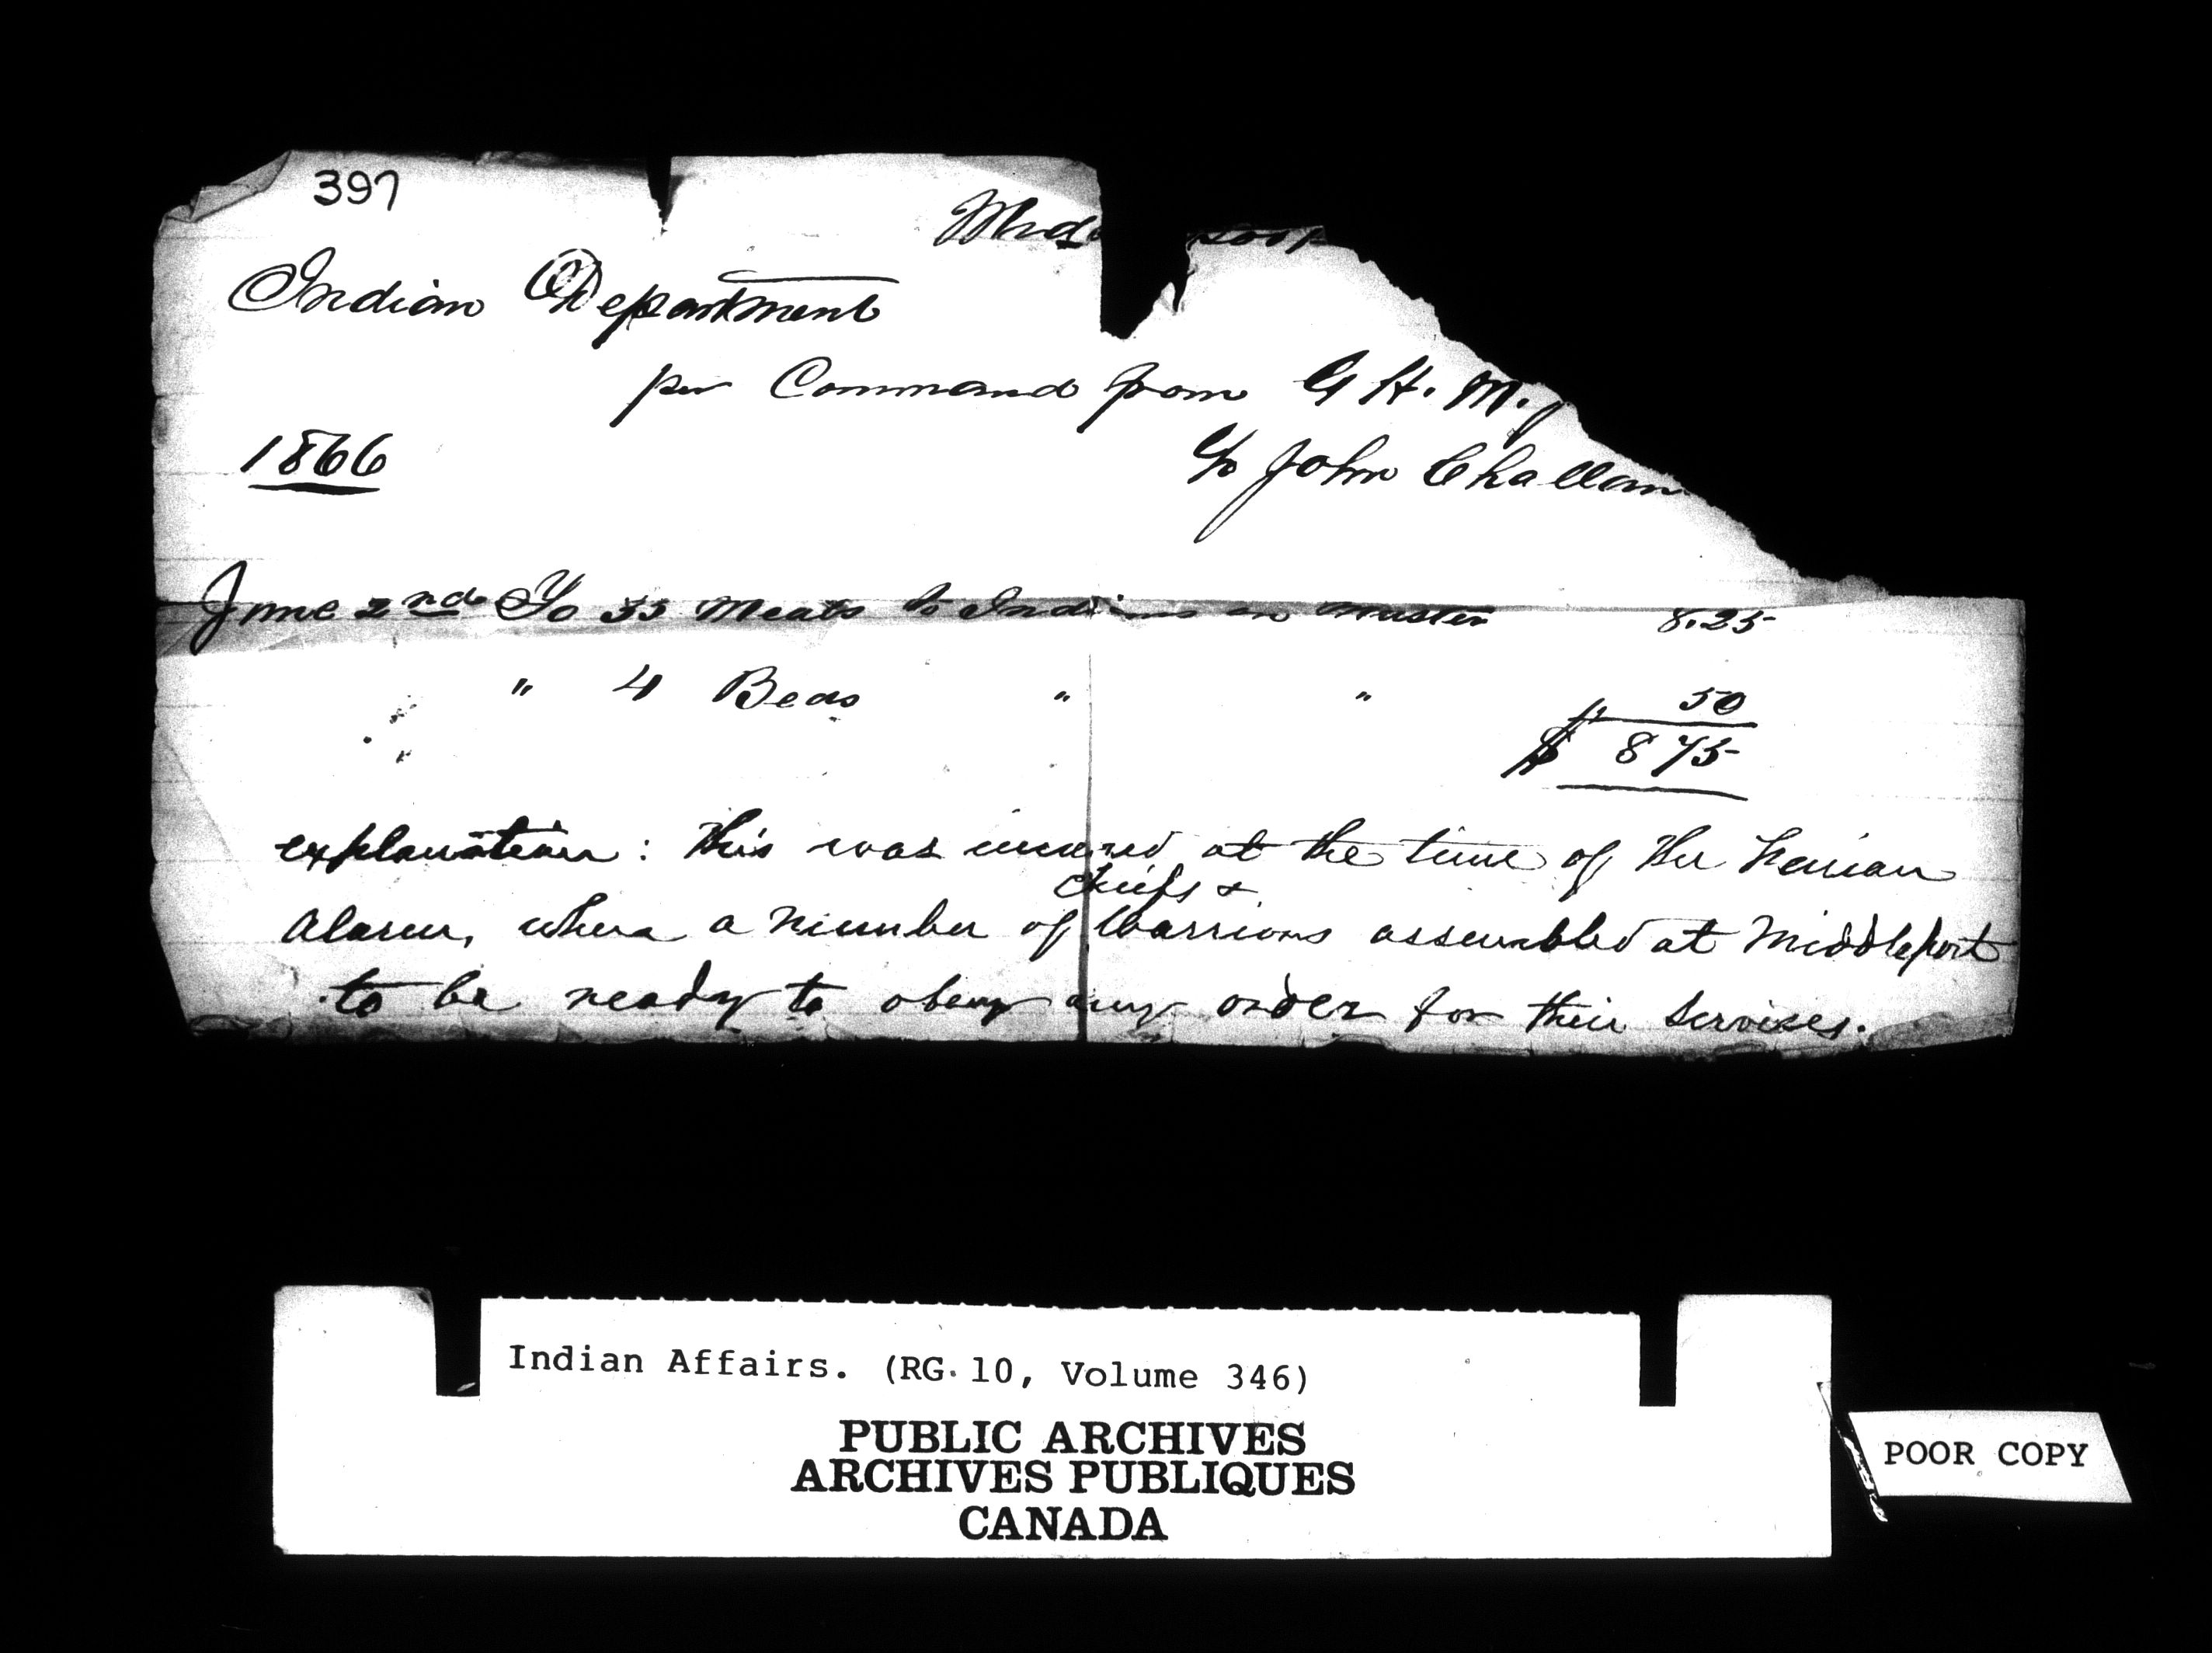 397
Indian Department
per Command from G H. M.
1866
To John Challan
June 2nd To 33 Meals to Indians on muster 8.25
" 4 Beds " " 50
$ 8 75
explanation: This was incurred at the time of the Fenian
chiefs &
Alarm, when a number of Warriors assembled at Middleport
to be ready to obey any order for their services.
Indian Affairs. (RG. 10, Volume 346)
PUBLIC ARCHIVES
ARCHIVES PUBLIQUES
CANADA
POOR COPY